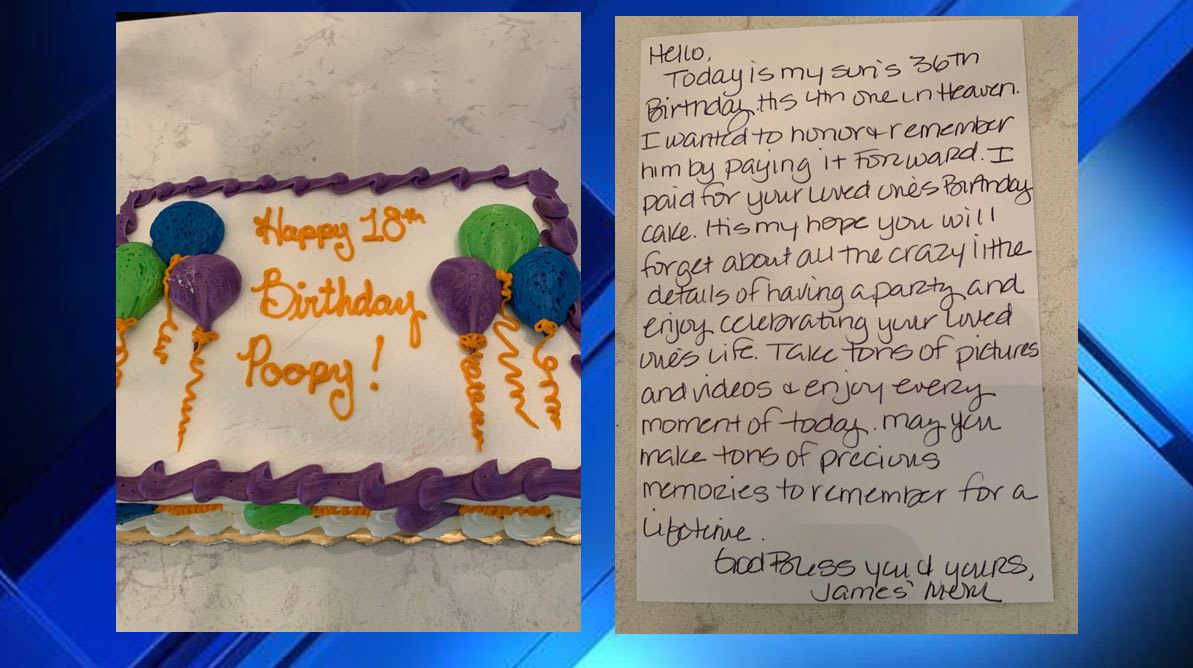 Happy 18th
Birthday
Poopy!
Hello,
Today is my son's 36th
Birthday. His 4th one in Heaven.
I wanted to honor & remember
him by paying it forward. I
paid for your loved one's Birthday
cake. It is my hope you will
forget about all the crazy little
details of having a party and
enjoy celebrating your loved
one's life. Take tons of pictures
and videos & enjoy every
moment of today. May you
make tons of precious
memories to remember for a
lifetime.
God Bless you & yours,
James' Mom